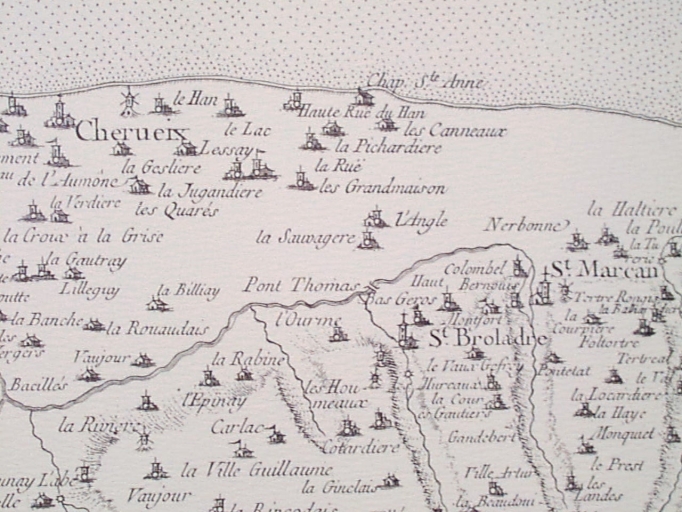 Chap. Ste Anne
le Han
Haute Rue du Han
Cherueix
le Lac
les Canneaux
Lessay
la Pichardiere
ment
la Geslière
la Ruë
au
de l'Aumône
la Jugandiere
les Grandmaison
la Verdiere
les Quarés
la Haltiere
l'Angle
Nerbonne
la Poul
la Croux à la Grise
la Sauvagere
la Gautray
Colombel
St. Marcan
Pont Thomas
Haut
Lilleguy
la Billiay
Bas Geros
Tertre Rouge
la Banche
l'Ourme
Montfort
la Rouaudais
St. Broladre
Foltortre
ergers
Vaujour
la Rabine
le Vaux Gefroy
Tertreal
Bacillés
les Hou
meaux
Hureaux
le V
l'Epinay
la Cour
la Locardiere
la Riviere
Carlac
es Gautiers
la Haye
Cotardiere
Gandebert
Monquet
la Ville Guillaume
le Prest
unay L'abé
Ville Artur
Vaujour
la Ginclais
les
Landes
la Rincodais
la Beaudoui